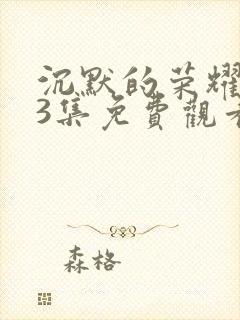 沉默的荣耀
3集免費觀看
森格